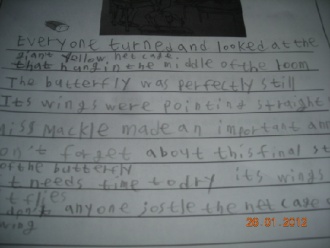 Everyone turned and looked at the
giant yellow net cage.
that hung in the middle of the room
The butterfly was perfectly still
Its wings were pointing straight
Miss Mackle made an important ann
on't forget about this final st
of the butterfly
t needs time to dry its wings
t flies
don't anyone jostle the net cage
wing
29.01.2012